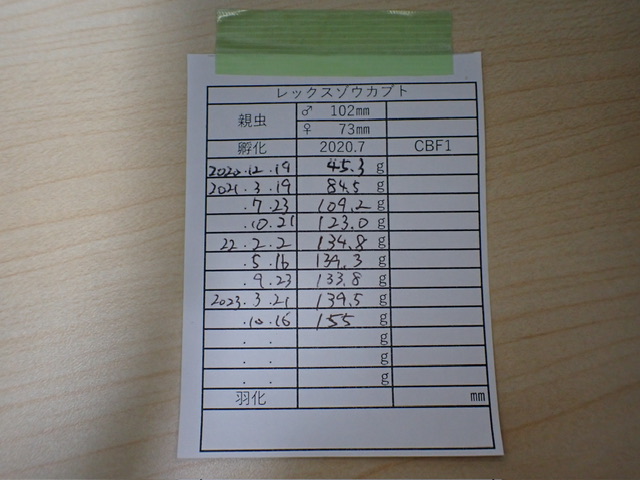 レックスゾウカブト
親虫 ♂ 102mm
♀ 73mm
孵化 2020.7 CBF1
2020.12.19 45.3 g
2021.3.19 84.5 g
.7.23 109.2 g
.10.21 123.0 g
22.2.2 134.8 g
.5.16 134.3 g
.9.23 133.8 g
2023.3.21 139.5 g
.10.16 155 g
. . g
. . g
. . g
羽化 mm